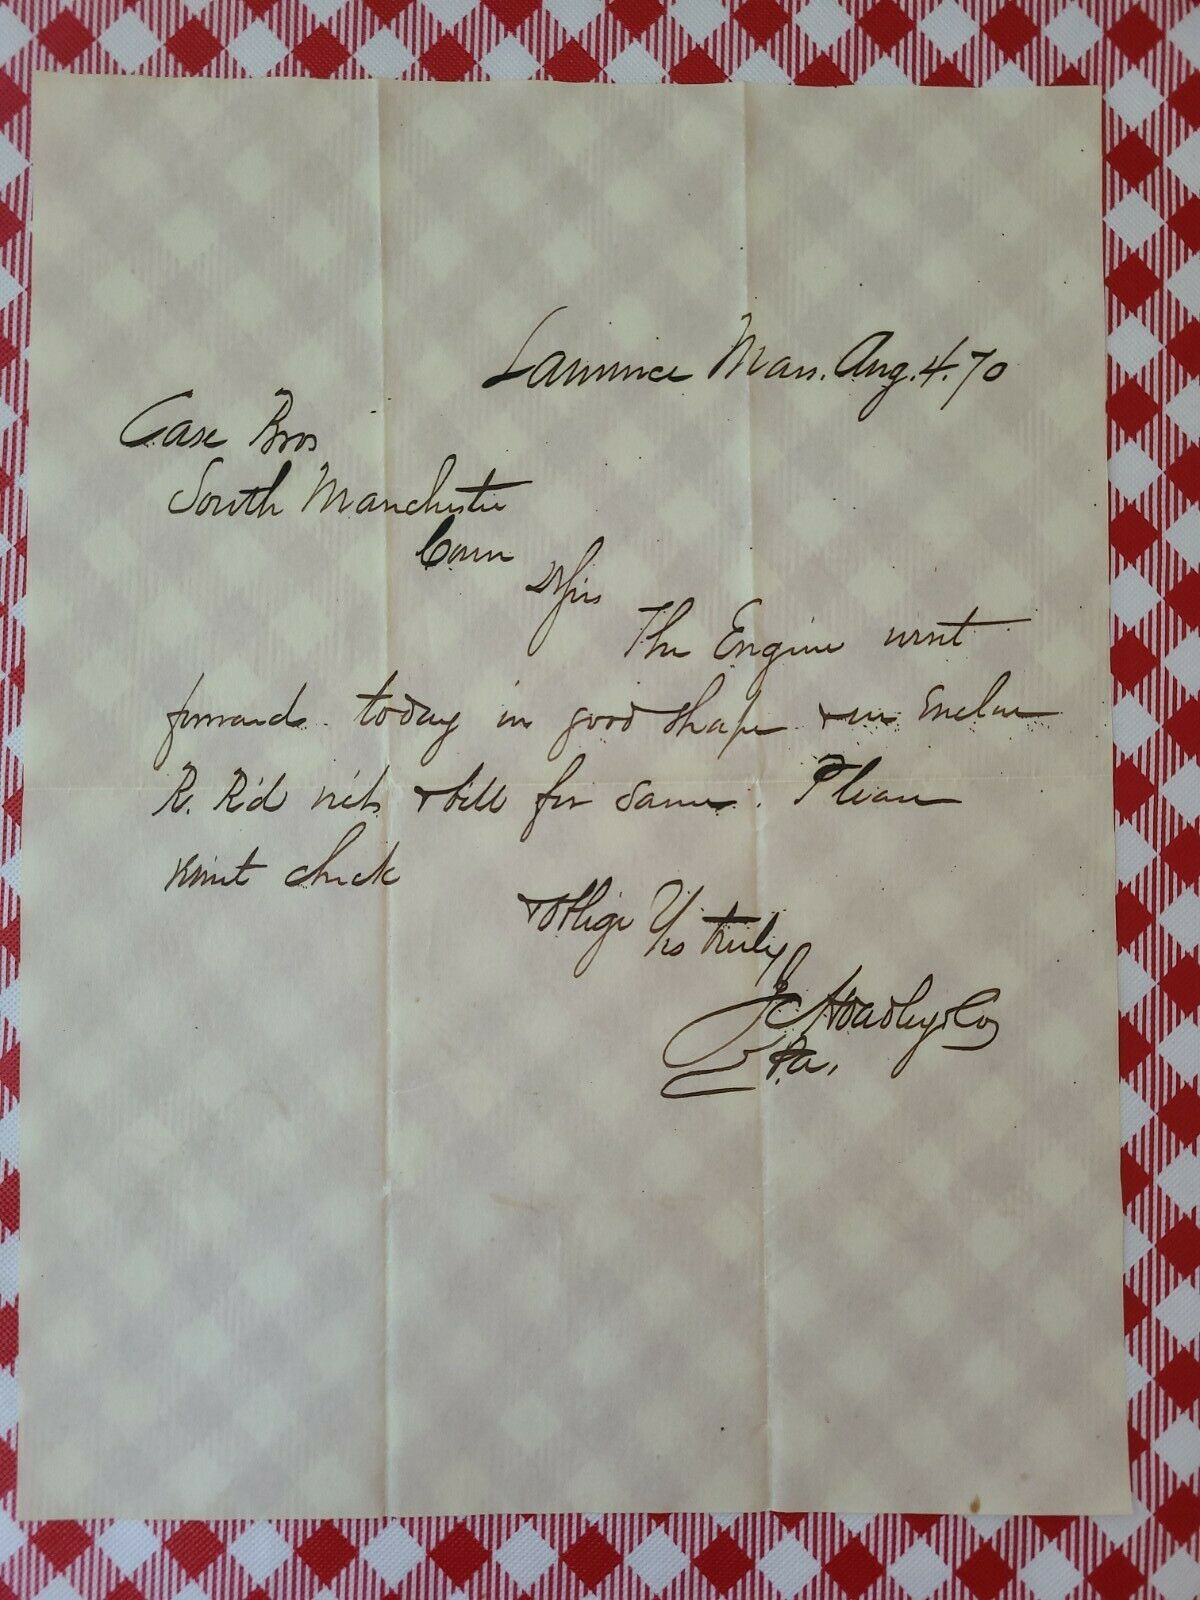 Lawrence Mass. Aug. 4. 70
Case Bros
South Manchester
Conn
Sirs
The Engine went
forward today in good shape & we Enclose
R. R'd rec't & bill for same. Please
remit check
& oblige Yrs truly
J C Hoadley & Co